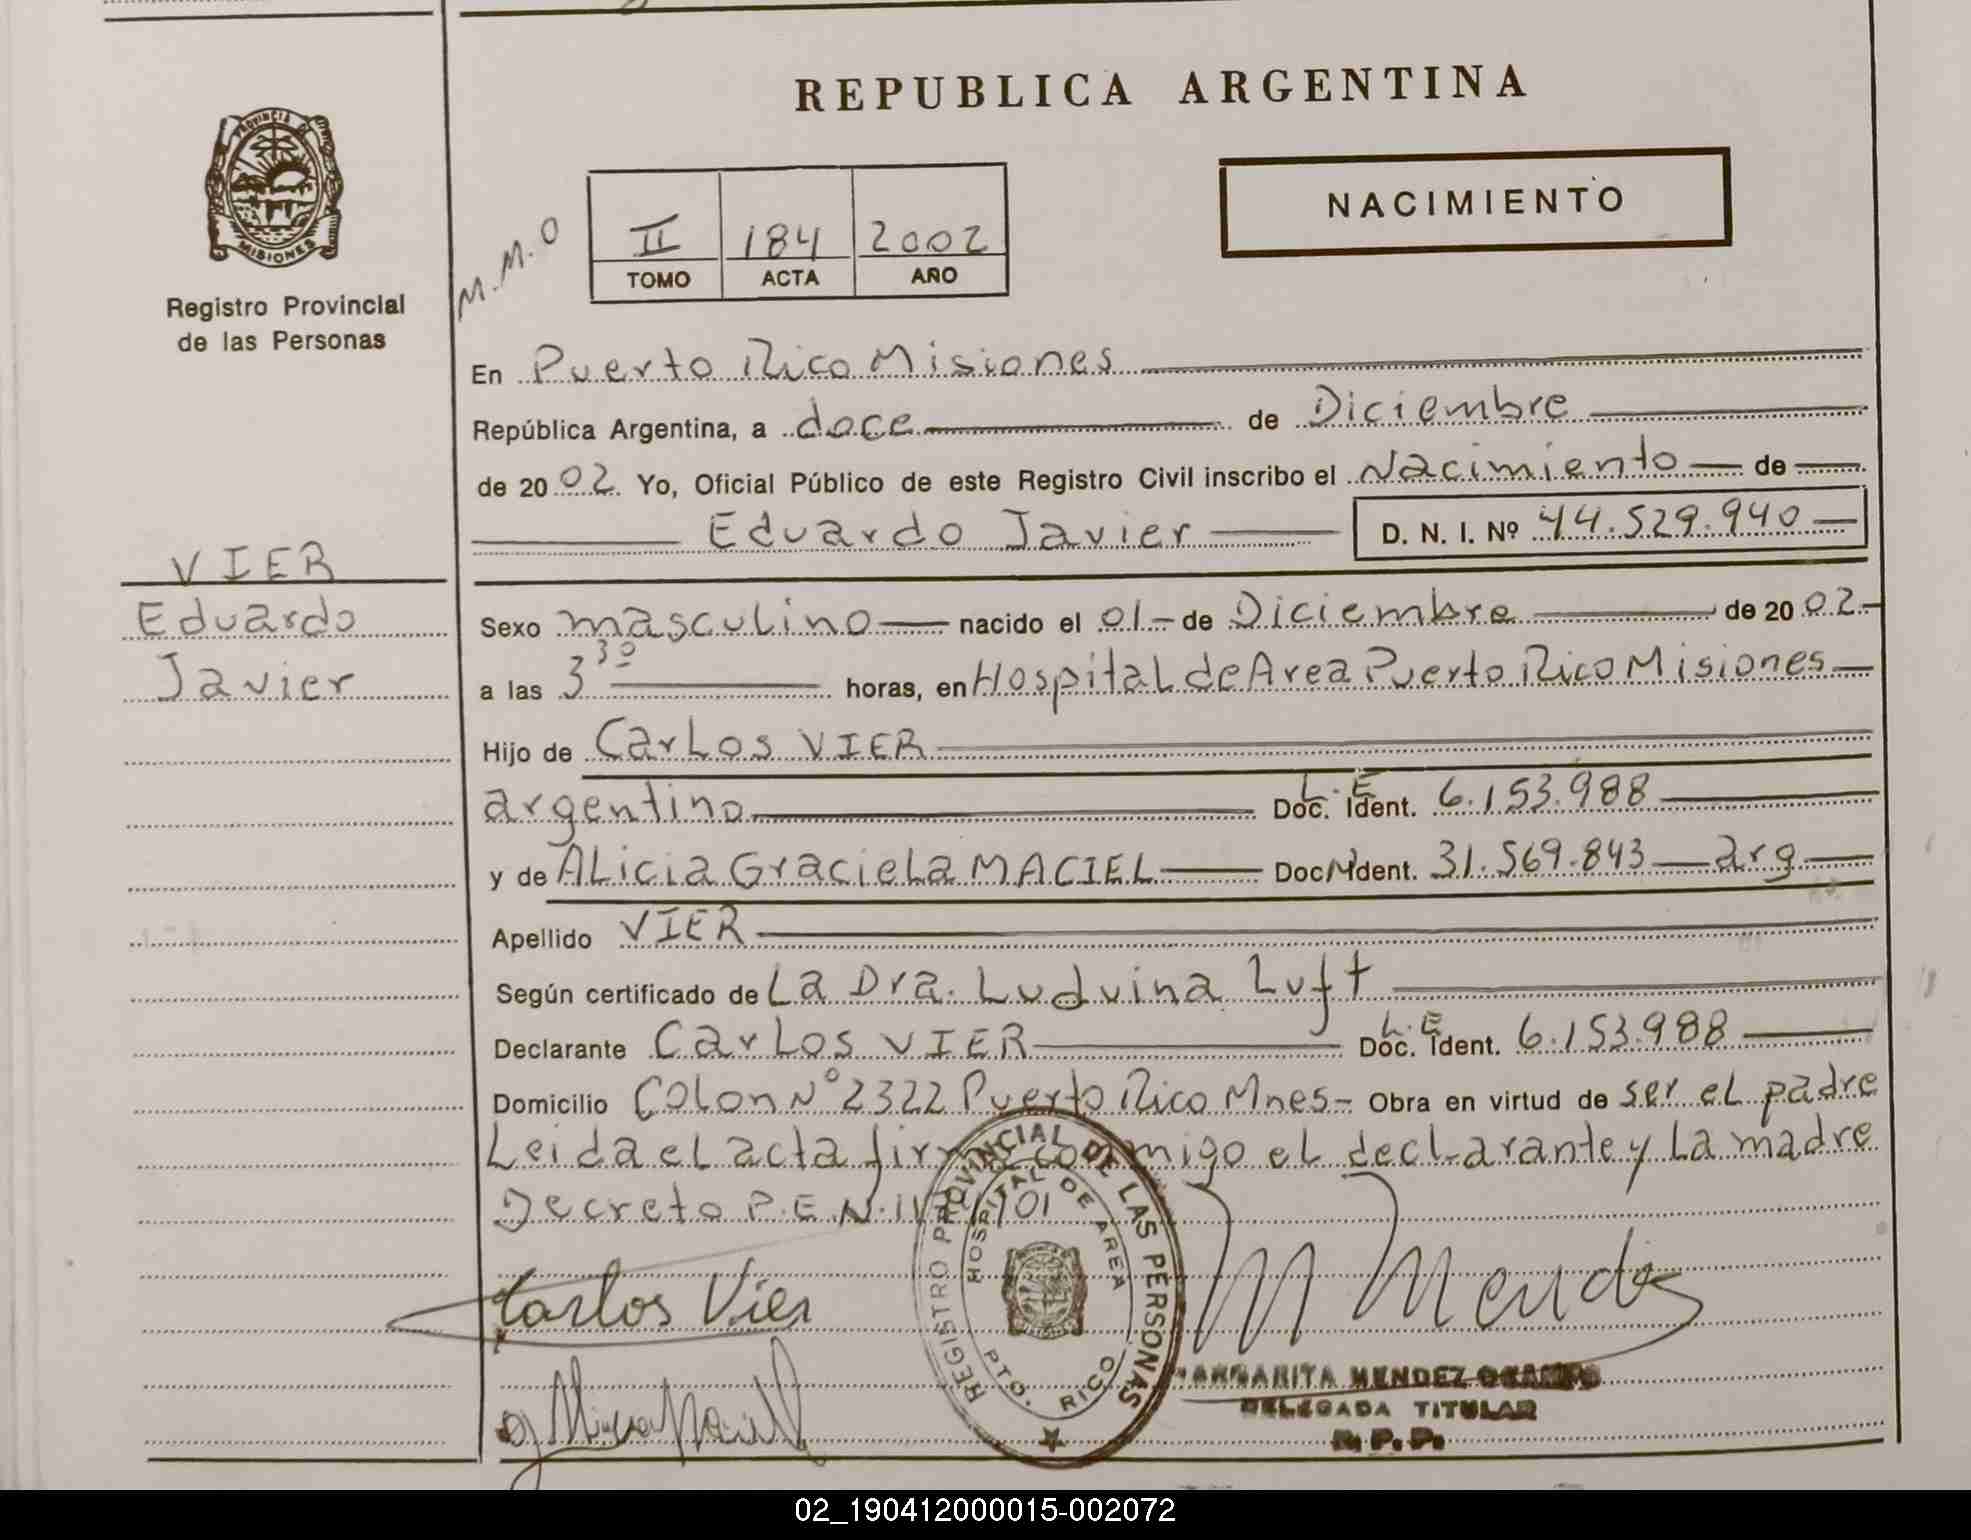 REPUBLICA ARGENTINA
PROVINCIA DE
MISIONES
Registro Provincial
de las Personas
M.M.O
II 184 2002
TOMO ACTA AÑO
NACIMIENTO
En Puerto Rico Misiones
República Argentina, a doce de Diciembre
de 2002 Yo, Oficial Público de este Registro Civil inscribo el Nacimiento de
Eduardo Javier D. N. I. Nº 44.529.940
VIER
Eduardo
Javier
Sexo masculino nacido el 01 de Diciembre de 2002
a las 3 30 horas, en Hospital de Area Puerto Rico Misiones
Hijo de Carlos VIER
argentino L.E Doc. Ident. 6.153.988
y de ALicia GracieLa MACIEL Doc. Ident. 31.569.843 arg
Apellido VIER
Según certificado de La Dra. Luduina Luft
Declarante Carlos VIER L.E Doc. Ident. 6.153.988
Domicilio Colon N° 2322 Puerto Rico Mnes- Obra en virtud de ser el padre
Leida el acta conmigo el declarante y La madre
Decreto P.E.N. 01
REGISTRO PROVINCIAL DE LAS PERSONAS
HOSPITAL DE AREA
PTO. RICO
Carlos Vier
M Mendez
MARGARITA MENDEZ OCAMPO
DELEGADA TITULAR
R. P. P.
02_190412000015-002072